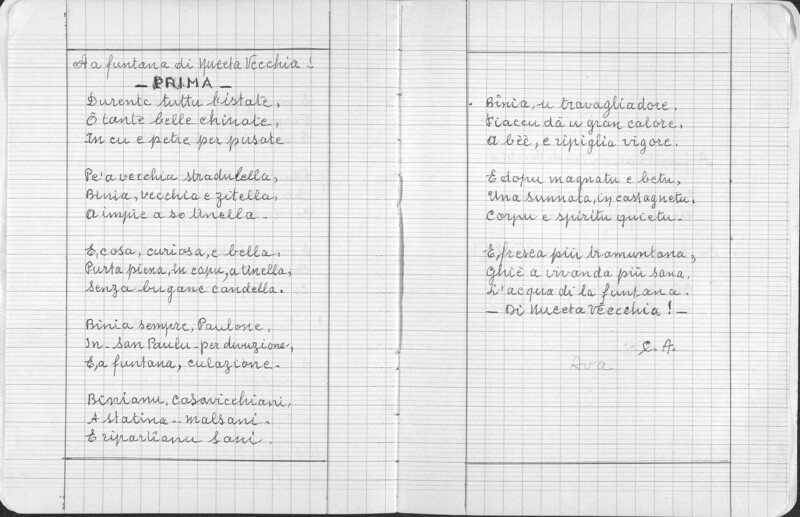 A a funtana di Nuceta Vecchia !
- PRIMA -
Durente tuttu l'istate,
Ô tante belle chinate,
In cu e petre per pusate.
Pe'a vecchia stradulella,
Binia, vecchia e zitella,
A impie a so tinella.
E, cosa, curiosa, e bella.
Purta piena, in capu, a tinella,
Senza bugane candella.
Binia sempre, Paulone,
In - San Paulu - per divuzione,
E, a funtana, culazione.
Binianu, casavicchiani,
A statina - malsani.
E ripartianu sani.
Binia, u travagliadore,
Fiaccu dà u gran calore.
A bèè, e ripiglia vigore.
E dopu magnatu e betu,
Una sunnata, in castagnetu.
Corpu e spiritu quietu.
E, fresca più tramuntana,
Ghiè a vivanda più sana.
L'acqua di la funtana.
- Di Nuceta Vecchia ! -
C. A.
Ava